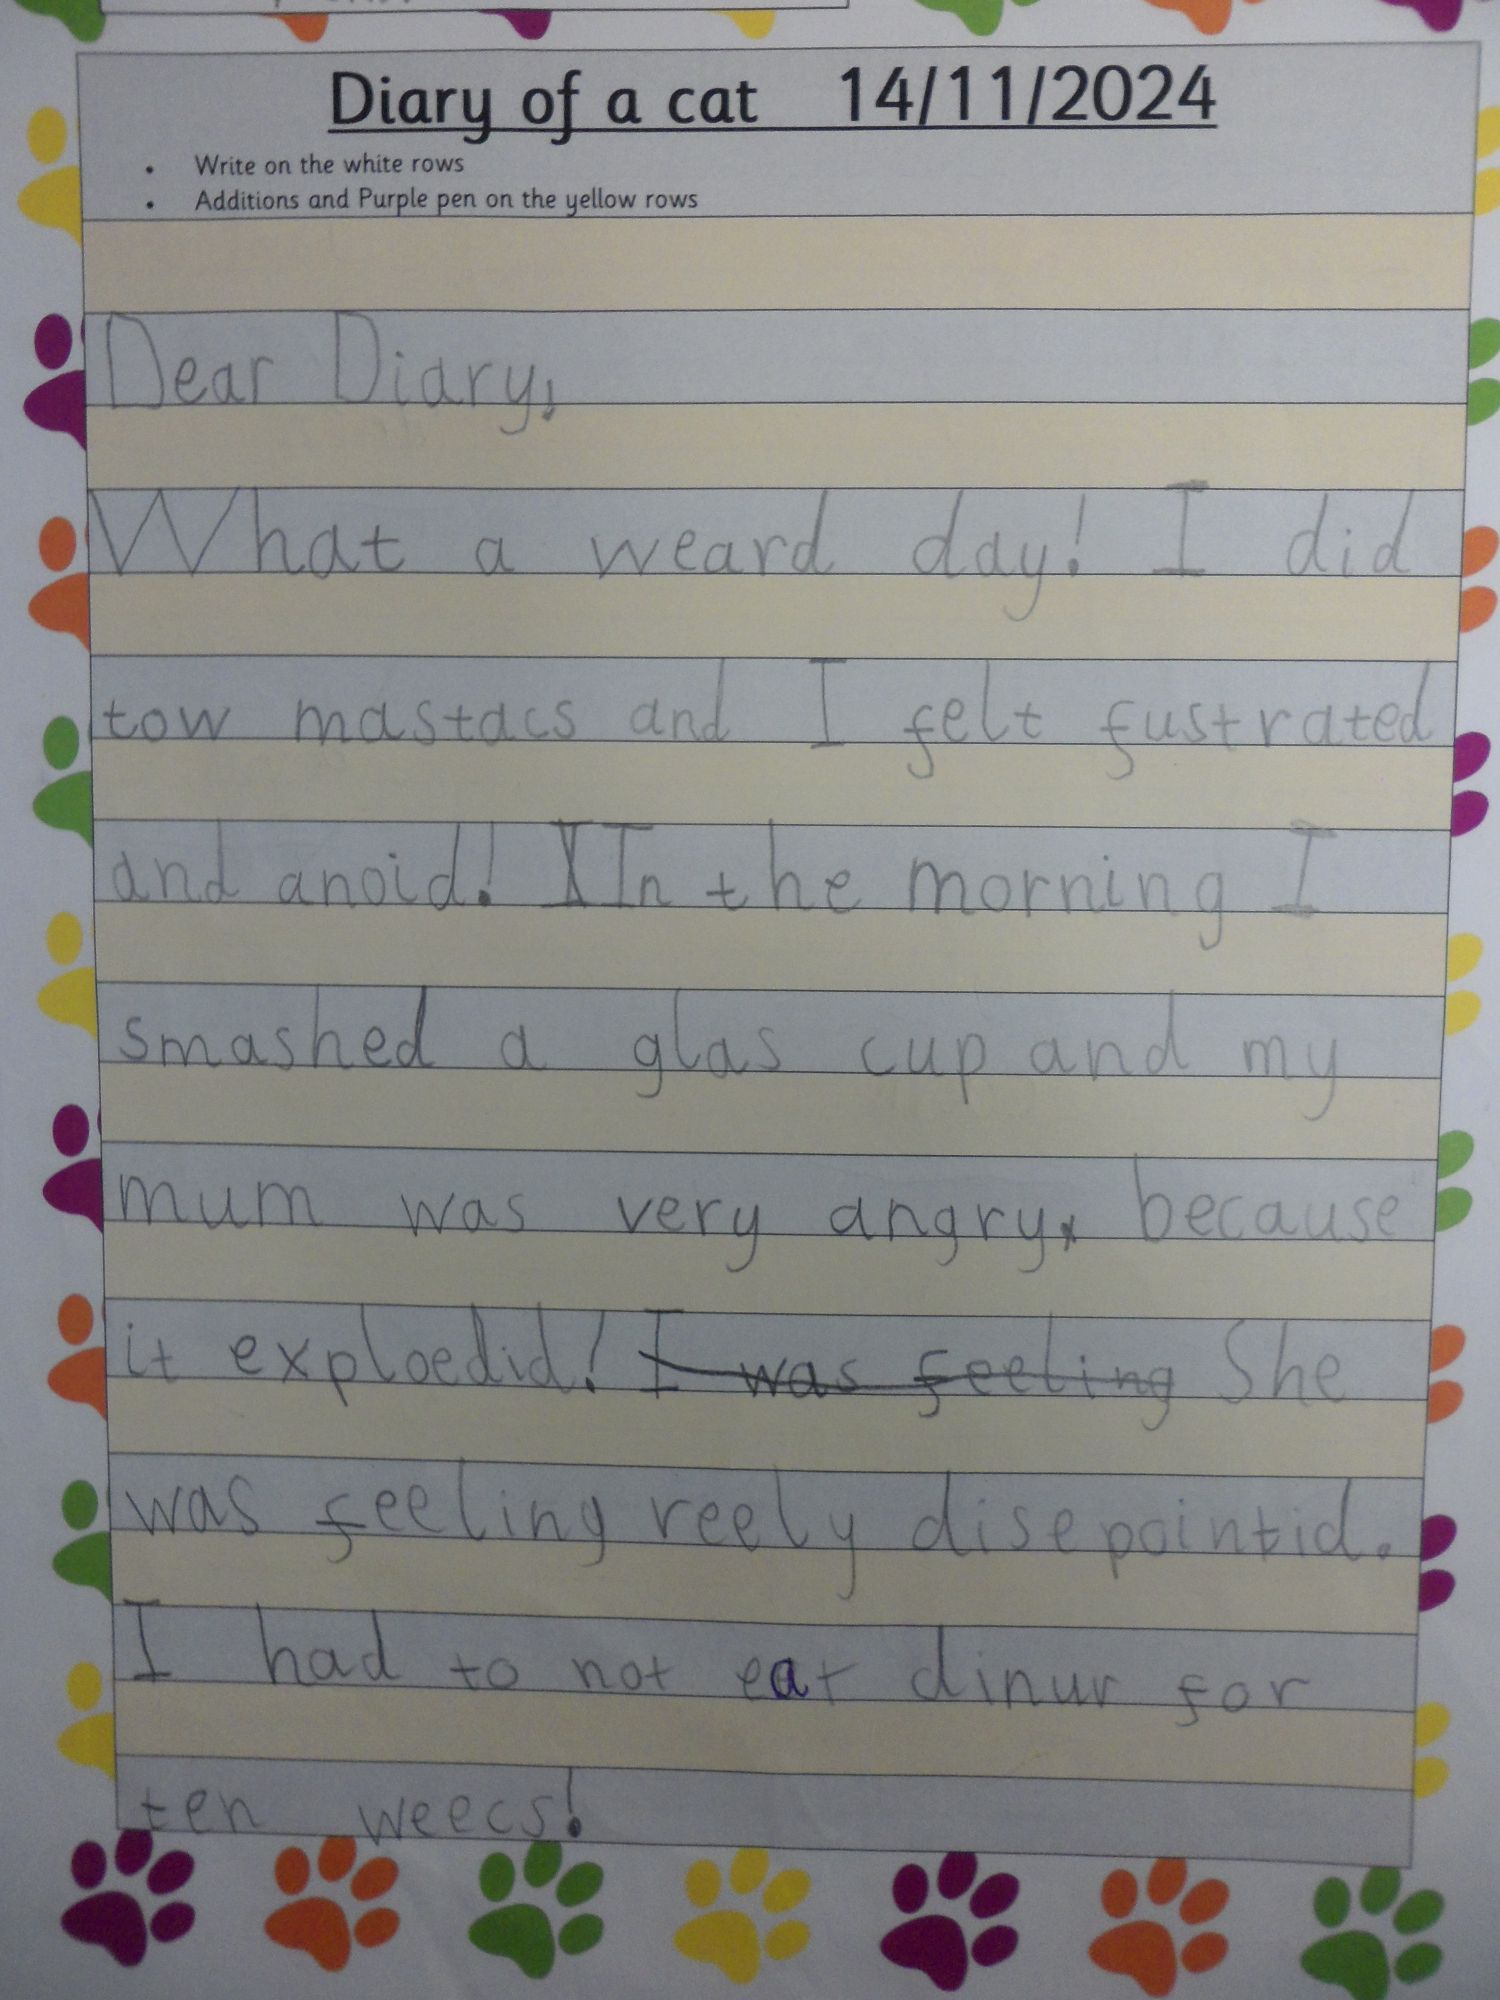 Diary of a cat 14/11/2024
• Write on the white rows
• Additions and Purple pen on the yellow rows
Dear Diary,
What a weard day! I did
tow mastacs and I felt fustrated
and anoid! In the morning I
smashed a glas cup and my
mum was very angry, because
it exploedid! I was feeling She
was feeling reely disepointid.
I had to not eat dinur for
ten weecs!